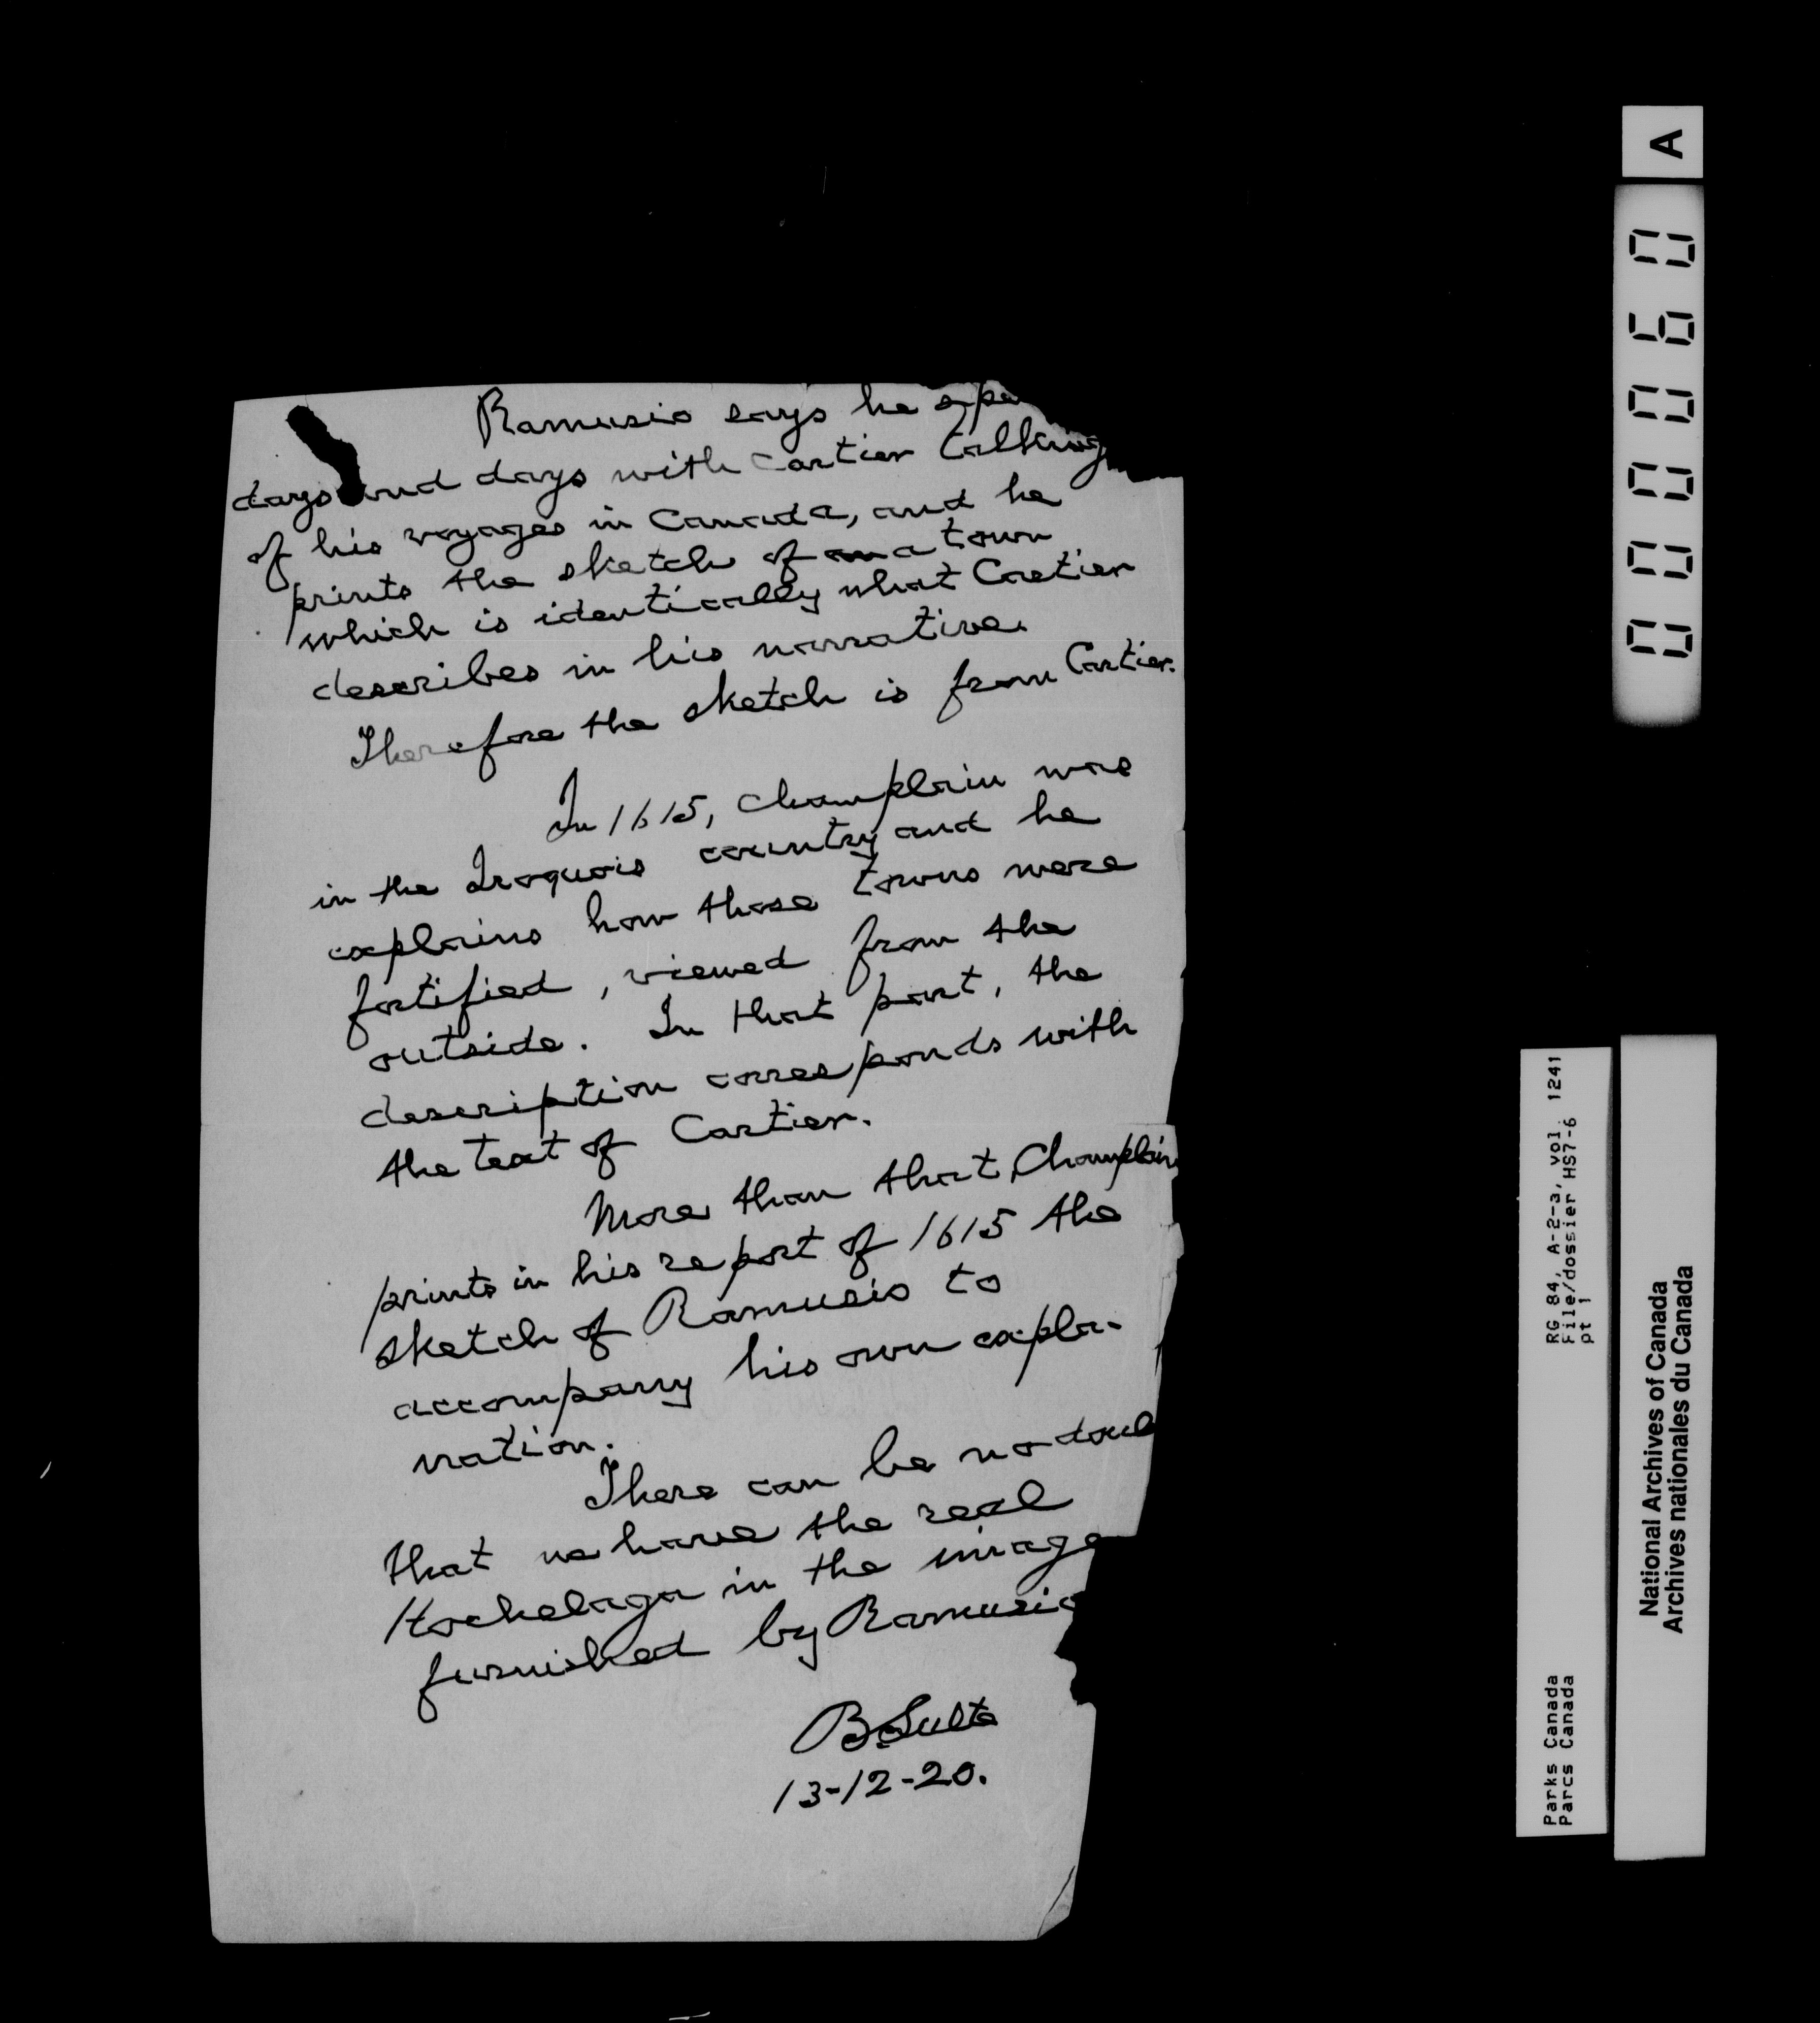 Ramusio says he spe
days and days with Cartier talking
of his voyages in Canada, and he
prints the sketch of a town
which is identically what Cartier
describes in his narrative.
Therefore the sketch is from Cartier.
In 1615, Champlain was
in the Iroquois country and he
explains how those towns were
fortified, viewed from the
outside. In that part, the
description corresponds with
the text of Cartier.
More than that, Champlain
prints in his report of 1615 the
sketch of Ramusio to
accompany his own expla-
nation.
There can be no doub
that we have the real
Hochelaga in the image
furnished by Ramusio
B. Sulte
13-12-20.
A
000060
RG 84, A-2-a, vol. 1241
File/dossier HS7-6
pt 1
Parks Canada
Parcs Canada
National Archives of Canada
Archives nationales du Canada